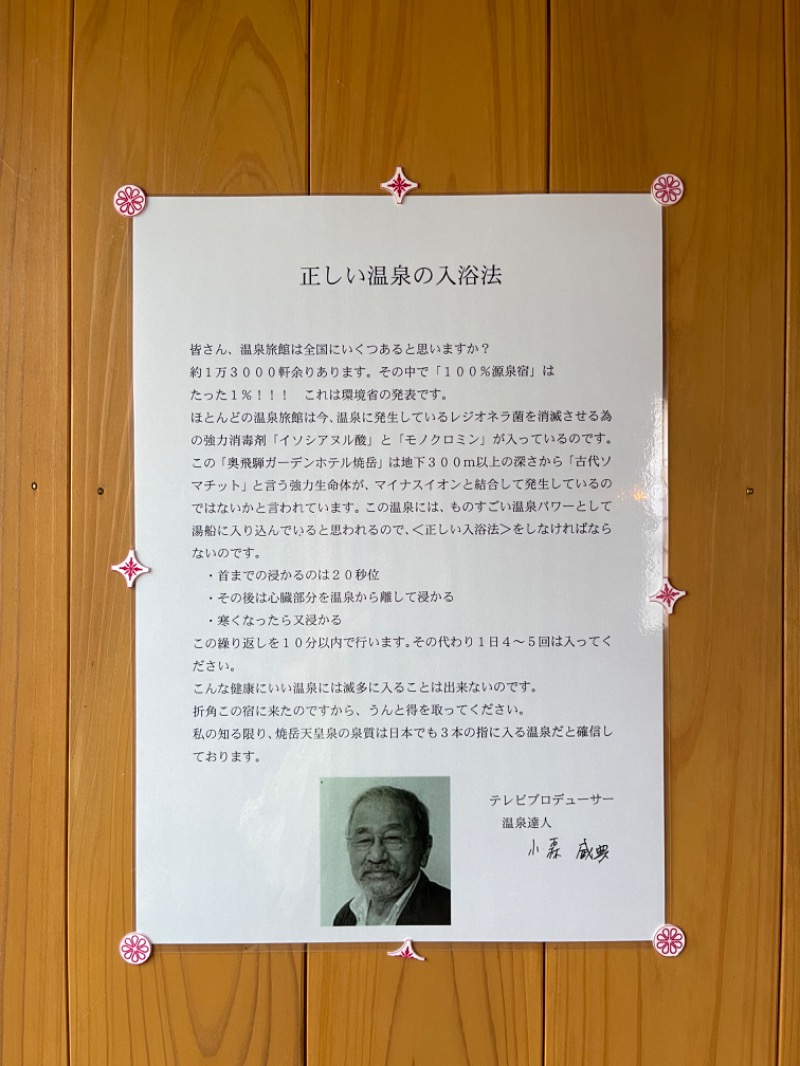 正しい温泉の入浴法
皆さん、温泉旅館は全国にいくつあると思いますか？
約１万３０００軒余りあります。その中で「１００％源泉宿」は
たった１％！！！　これは環境省の発表です。
ほとんどの温泉旅館は今、温泉に発生しているレジオネラ菌を消滅させる為
の強力消毒剤「イソシアヌル酸」と「モノクロミン」が入っているのです。
この「奥飛騨ガーデンホテル焼岳」は地下３００ｍ以上の深さから「古代ソ
マチット」と言う強力生命体が、マイナスイオンと結合して発生しているの
ではないかと言われています。この温泉には、ものすごい温泉パワーとして
湯船に入り込んでいると思われるので、＜正しい入浴法＞をしなければなら
ないのです。
・首までの浸かるのは２０秒位
・その後は心臓部分を温泉から離して浸かる
・寒くなったら又浸かる
この繰り返しを１０分以内で行います。その代わり１日４～５回は入ってく
ださい。
こんな健康にいい温泉には滅多に入ることは出来ないのです。
折角この宿に来たのですから、うんと得を取ってください。
私の知る限り、焼岳天皇泉の泉質は日本でも３本の指に入る温泉だと確信し
ております。
テレビプロデューサー
温泉達人
小森 威典